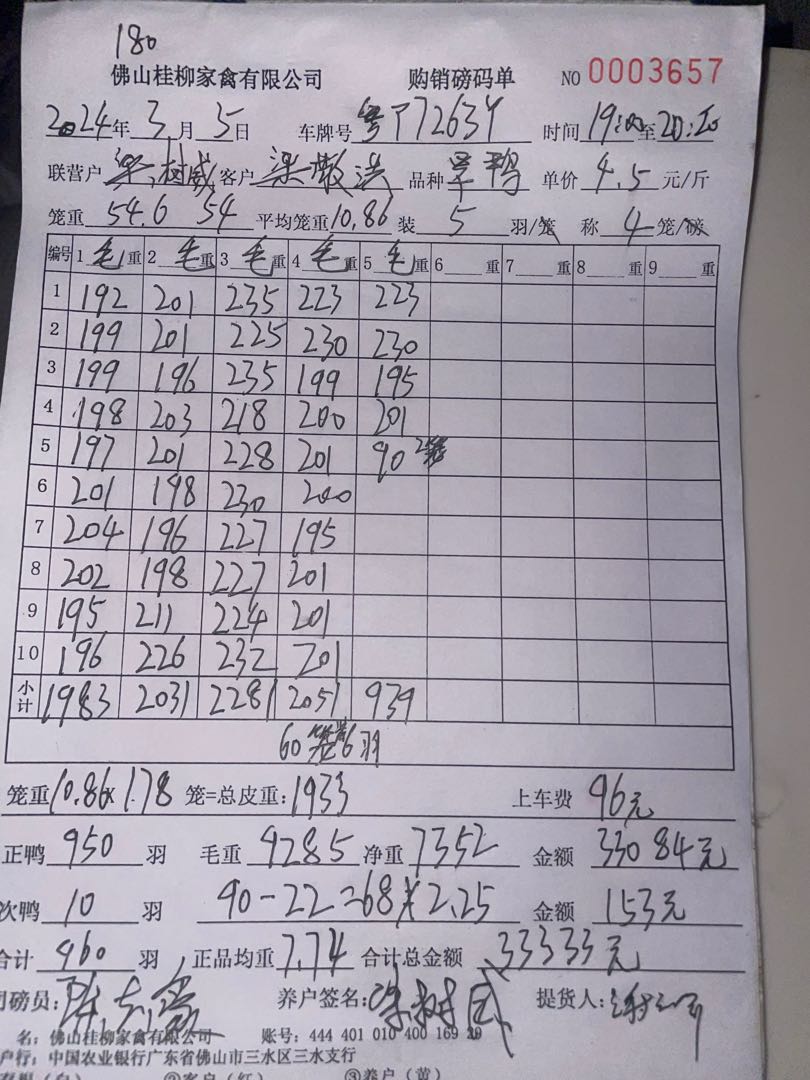 180
佛山桂柳家禽有限公司 购销磅码单 NO 0003657
2024年 3 月 5 日 车牌号 粤P72634 时间 19:00至20:20
联营户 梁树威 客户 梁散洪 品种 单价 4.5 元/斤
笼重 54.6 54 平均笼重 10.86 装 5 羽/笼 称 4 笼/磅
编号 1 毛 重 2 毛 重 3 毛 重 4 毛 重 5 毛 重 6 重 7 重 8 重 9 重
1 192 201 235 223 223
2 199 201 225 230 230
3 199 196 235 199 195
4 198 203 218 200 201
5 197 201 228 201 90 2笼
6 201 198 230 200
7 204 196 227 195
8 202 198 227 201
9 195 211 224 201
10 196 226 232 201
小计 1983 2031 2281 2051 939
60笼装6羽
笼重 10.86 × 178 笼=总皮重: 1933 上车费 96元
正鸭 950 羽 毛重 9285 净重 7352 金额 33084元
次鸭 10 羽 90-22=68×2.25 金额 153元
合计 960 羽 正品均重 7.74 合计总金额 33333元
司磅员: 养户签名: 梁树威 提货人:
名: 佛山桂柳家禽有限公司 账号: 444 401 010 400 169 29
户行: 中国农业银行广东省佛山市三水区三水支行
存根(白) ②客户(红) ③养户(黄)